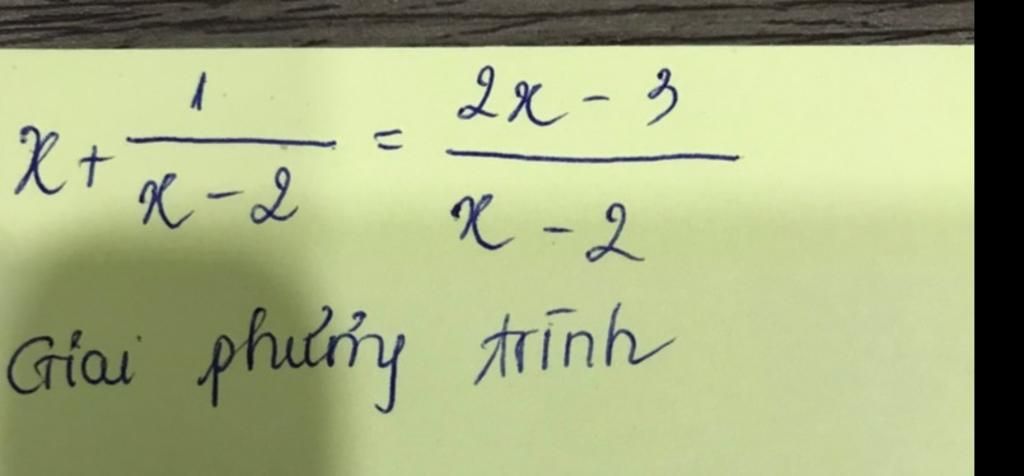 x + 1/(x - 2) = (2x - 3)/(x - 2)
Giải phương trình